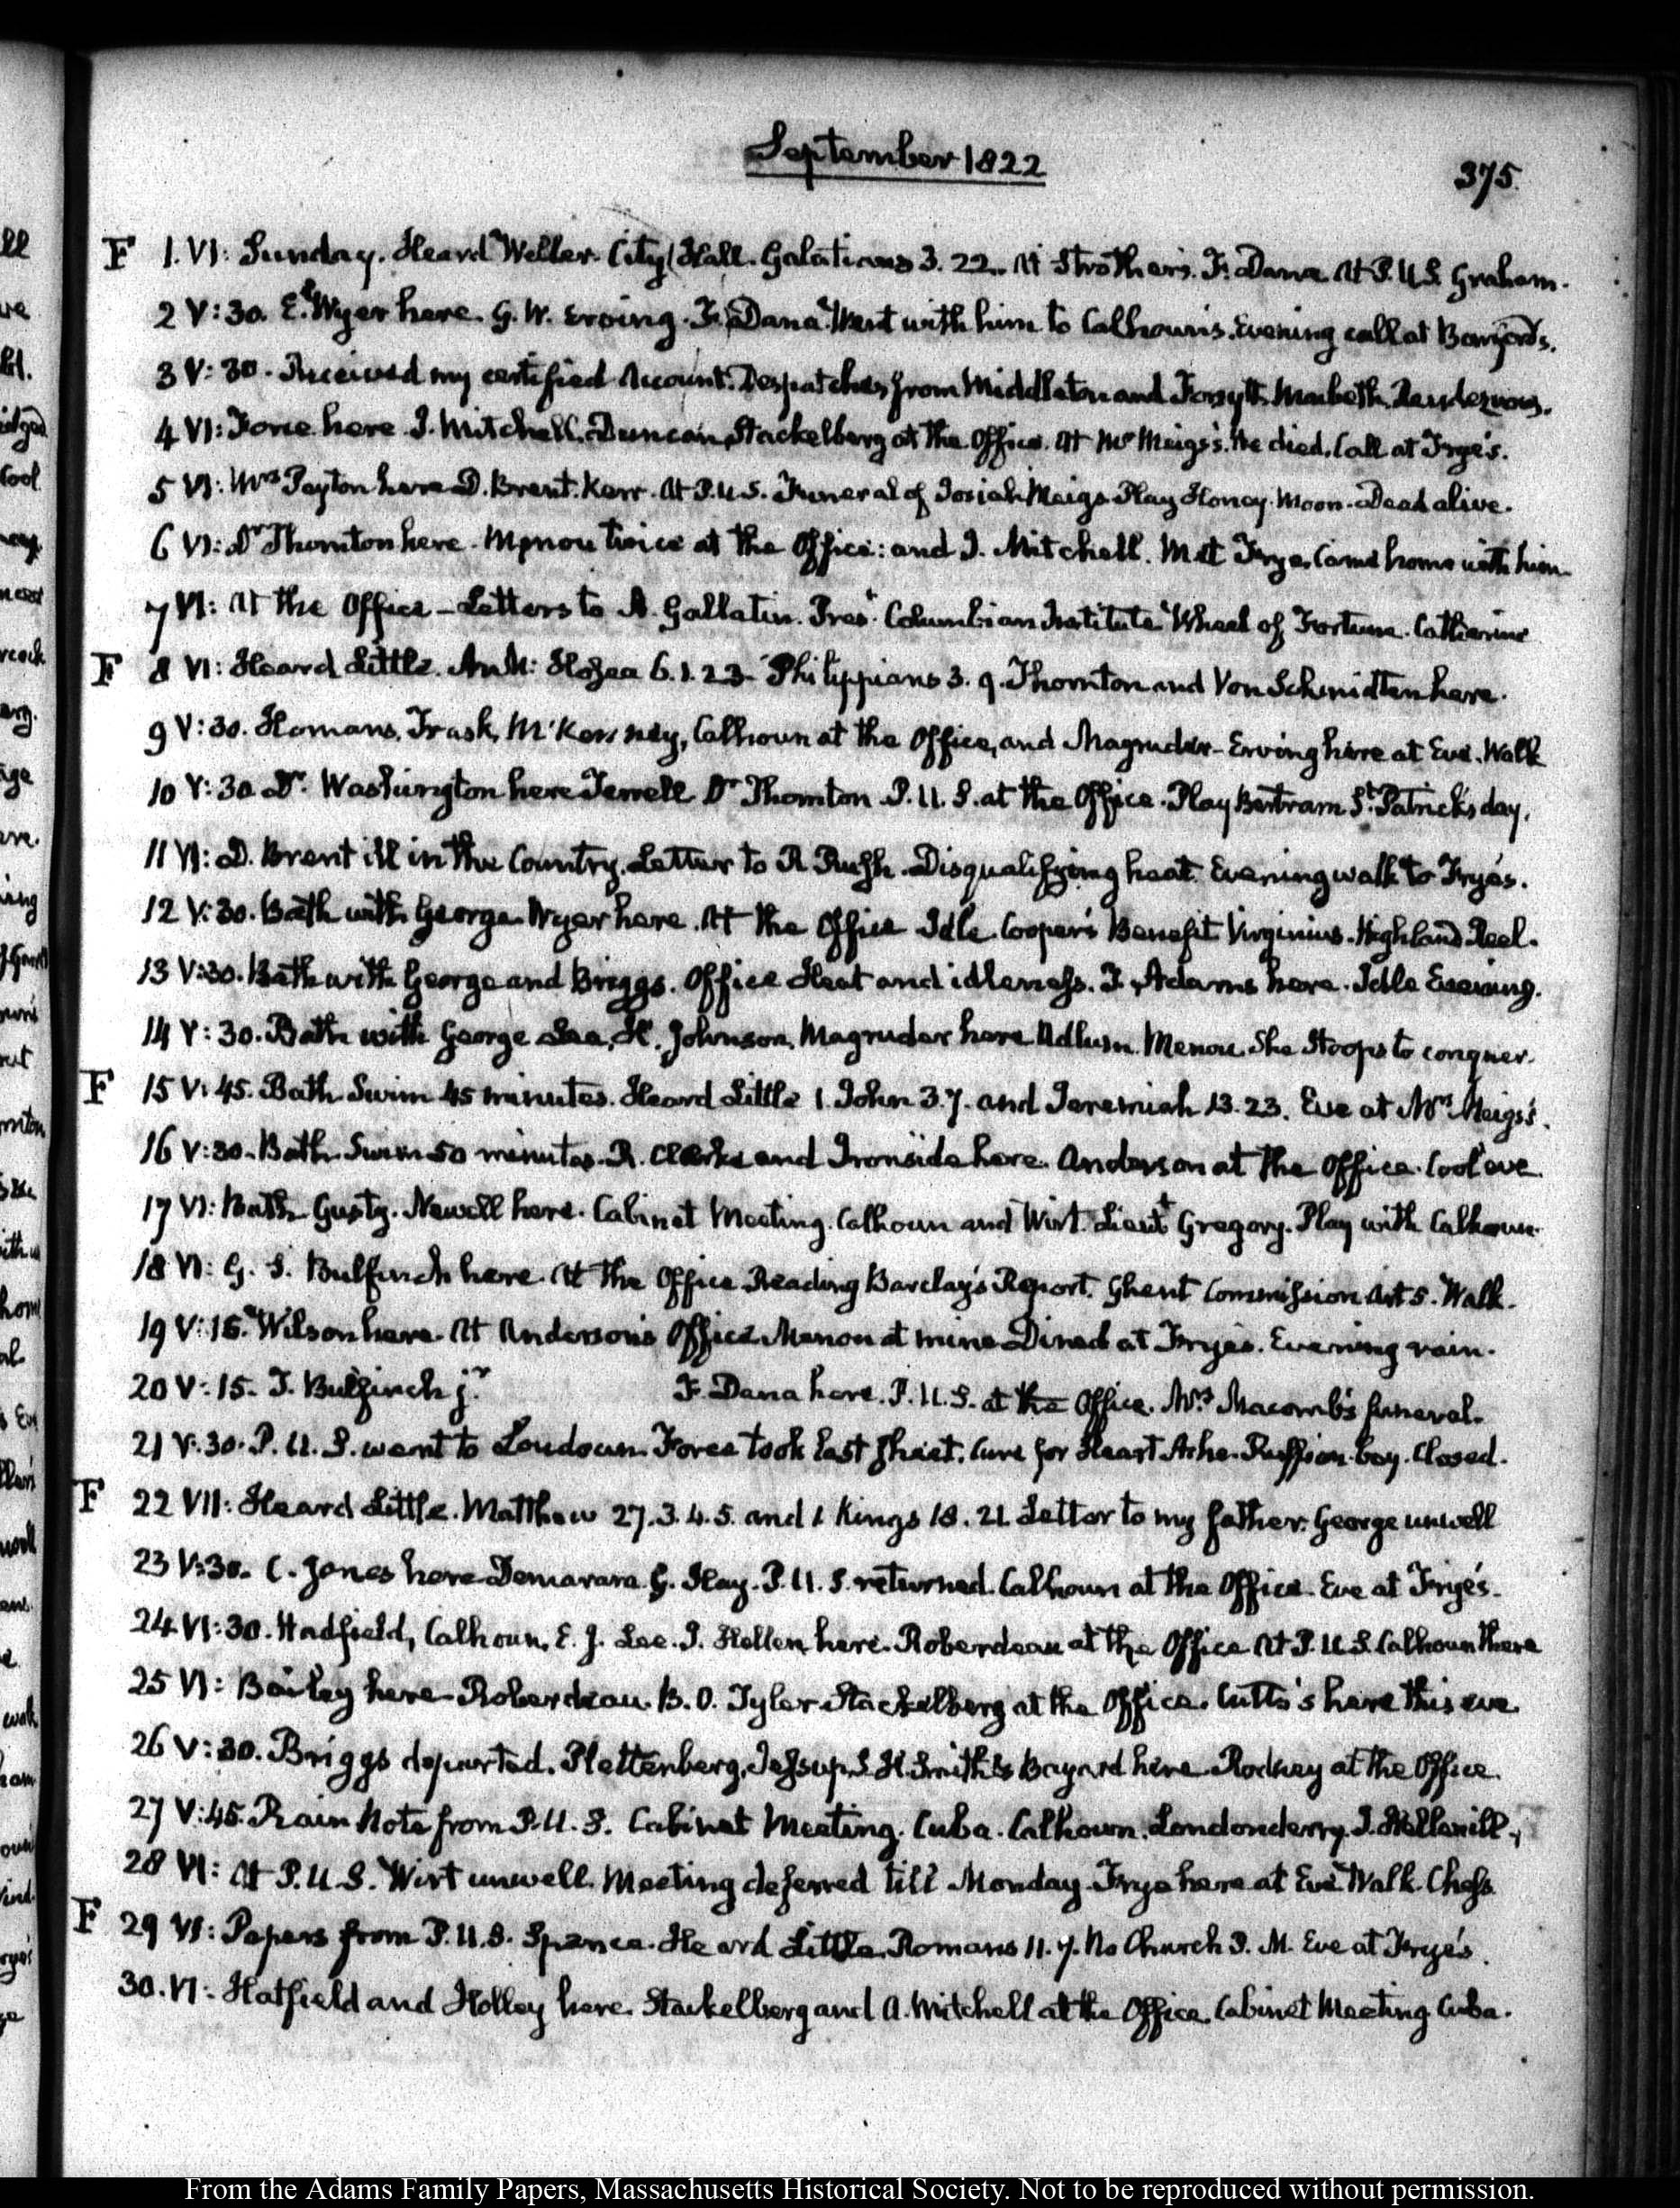 September 1822
375.
F 1. VI: Sunday. Heard Weller. City Hall. Galatians 3. 22. At Strother's. F. Dana. At P.U.S. Graham.
2 V:30. E. Wyer here. G. W. Erving. F. Dana. Went with him to Calhoun's. Evening call at Bomford's.
3 V:30. Received my certified Account. Despatches from Middleton and Forsyth. Macbeth. Rendezvous.
4 VI: Force here. J. Mitchell. Duncan, Stackelberg at the Office. At Mr Meigs's. He died. Call at Frye's.
5 VI: Mrs Peyton here. D. Brent. Kerr. At P.U.S. Funeral of Josiah Meigs. Play Honey-Moon. Dead alive.
6 VI: Dr Thornton here. Menou twice at the Office: and J. Mitchell. Met Frye. Came home with him.
7 VI: At the Office—Letters to A. Gallatin. Prest Columbian Institute. Wheel of Fortune. Catherine
F 8 VI: Heard Little. And Hosea 6. 1. 2 3. Philippians 3. 9. Thornton and Von Schmidten here.
9 V:30. Homans, Trask, McKenney, Calhoun at the Office, and Magruder—Erving here at Eve. Walk
10 V:30. Dr. Washington here. Dr Thornton. P.U.S. at the Office. Play Bertram St. Patrick's day.
11 VI: D. Brent ill in the Country. Letter to R. Rush. Disqualifying heat. Evening walk to Frye's.
12 V:30. Bath with George. Wyer here. At the Office. Idle. Cooper's Benefit. Virginius. Highland Reel.
13 V:30. Bath with George and Briggs. Office Heat and idleness. J. Adams here. Idle Evening.
14 V:30. Bath with George. Lee, H. Johnson. Magruder here. Adlum. Menou. She Stoops to conquer.
F 15 V:45. Bath Swim 45 minutes. Heard Little 1. John 3.7. and Jeremiah 13. 23. Eve at Mrs Meigs's.
16 V:30. Bath. Swim 50 minutes. R. Clarke and Ironside here. Anderson at the Office. Cool eve.
17 VI: Bath. Gusty. Newell here. Cabinet Meeting. Calhoun and Wirt. Lieut Gregory. Play with Calhoun.
18 VI: G. S. Bulfinch here. At the Office. Reading Barclay's Report. Ghent Commission Art 5. Walk.
19 V:15. Wilson here. At Anderson's Office. Menou at mine. Dined at Frye's. Evening rain.
20 V:15. T. Bulfinch jr. F. Dana here. P.U.S. at the Office. Mrs Macomb's funeral.
21 V:30. P.U.S. went to Loudoun. Force took last sheet. Cure for Heart Ache. Ruffian-boy. Closed.
F 22 VII: Heard Little. Matthew 27. 3. 4. 5. and 1 Kings 18. 21. Letter to my father. George unwell
23 V:30. C. Jones here. Demarara. G. Hay. P.U.S. returned. Calhoun at the Office. Eve at Frye's.
24 VI:30. Hadfield, Calhoun, E. J. Lee. J. Hellen here. Roberdeau at the Office. At P.U.S. Calhoun there
25 VI: Bailey here. Roberdeau. B. O. Tyler. Stackelberg at the Office. Cutts's here this eve.
26 V:30. Briggs departed. Plettenberg, Jessup, S. H. Smith & Bayard here. Rodney at the Office.
27 V:45. Rain. Note from P.U.S. Cabinet Meeting. Cuba. Calhoun. Londonderry. J. Hellen ill.
28 VI: At P.U.S. Wirt unwell. Meeting deferred till Monday. Frye here at Eve. Walk. Chess.
F 29 VI: Papers from P.U.S. Spence. Heard Little. Romans 11. 7. No Church P.M. Eve at Frye's.
30. VI: Hatfield and Holley here. Stackelberg and A. Mitchell at the Office. Cabinet Meeting Cuba.
From the Adams Family Papers, Massachusetts Historical Society. Not to be reproduced without permission.